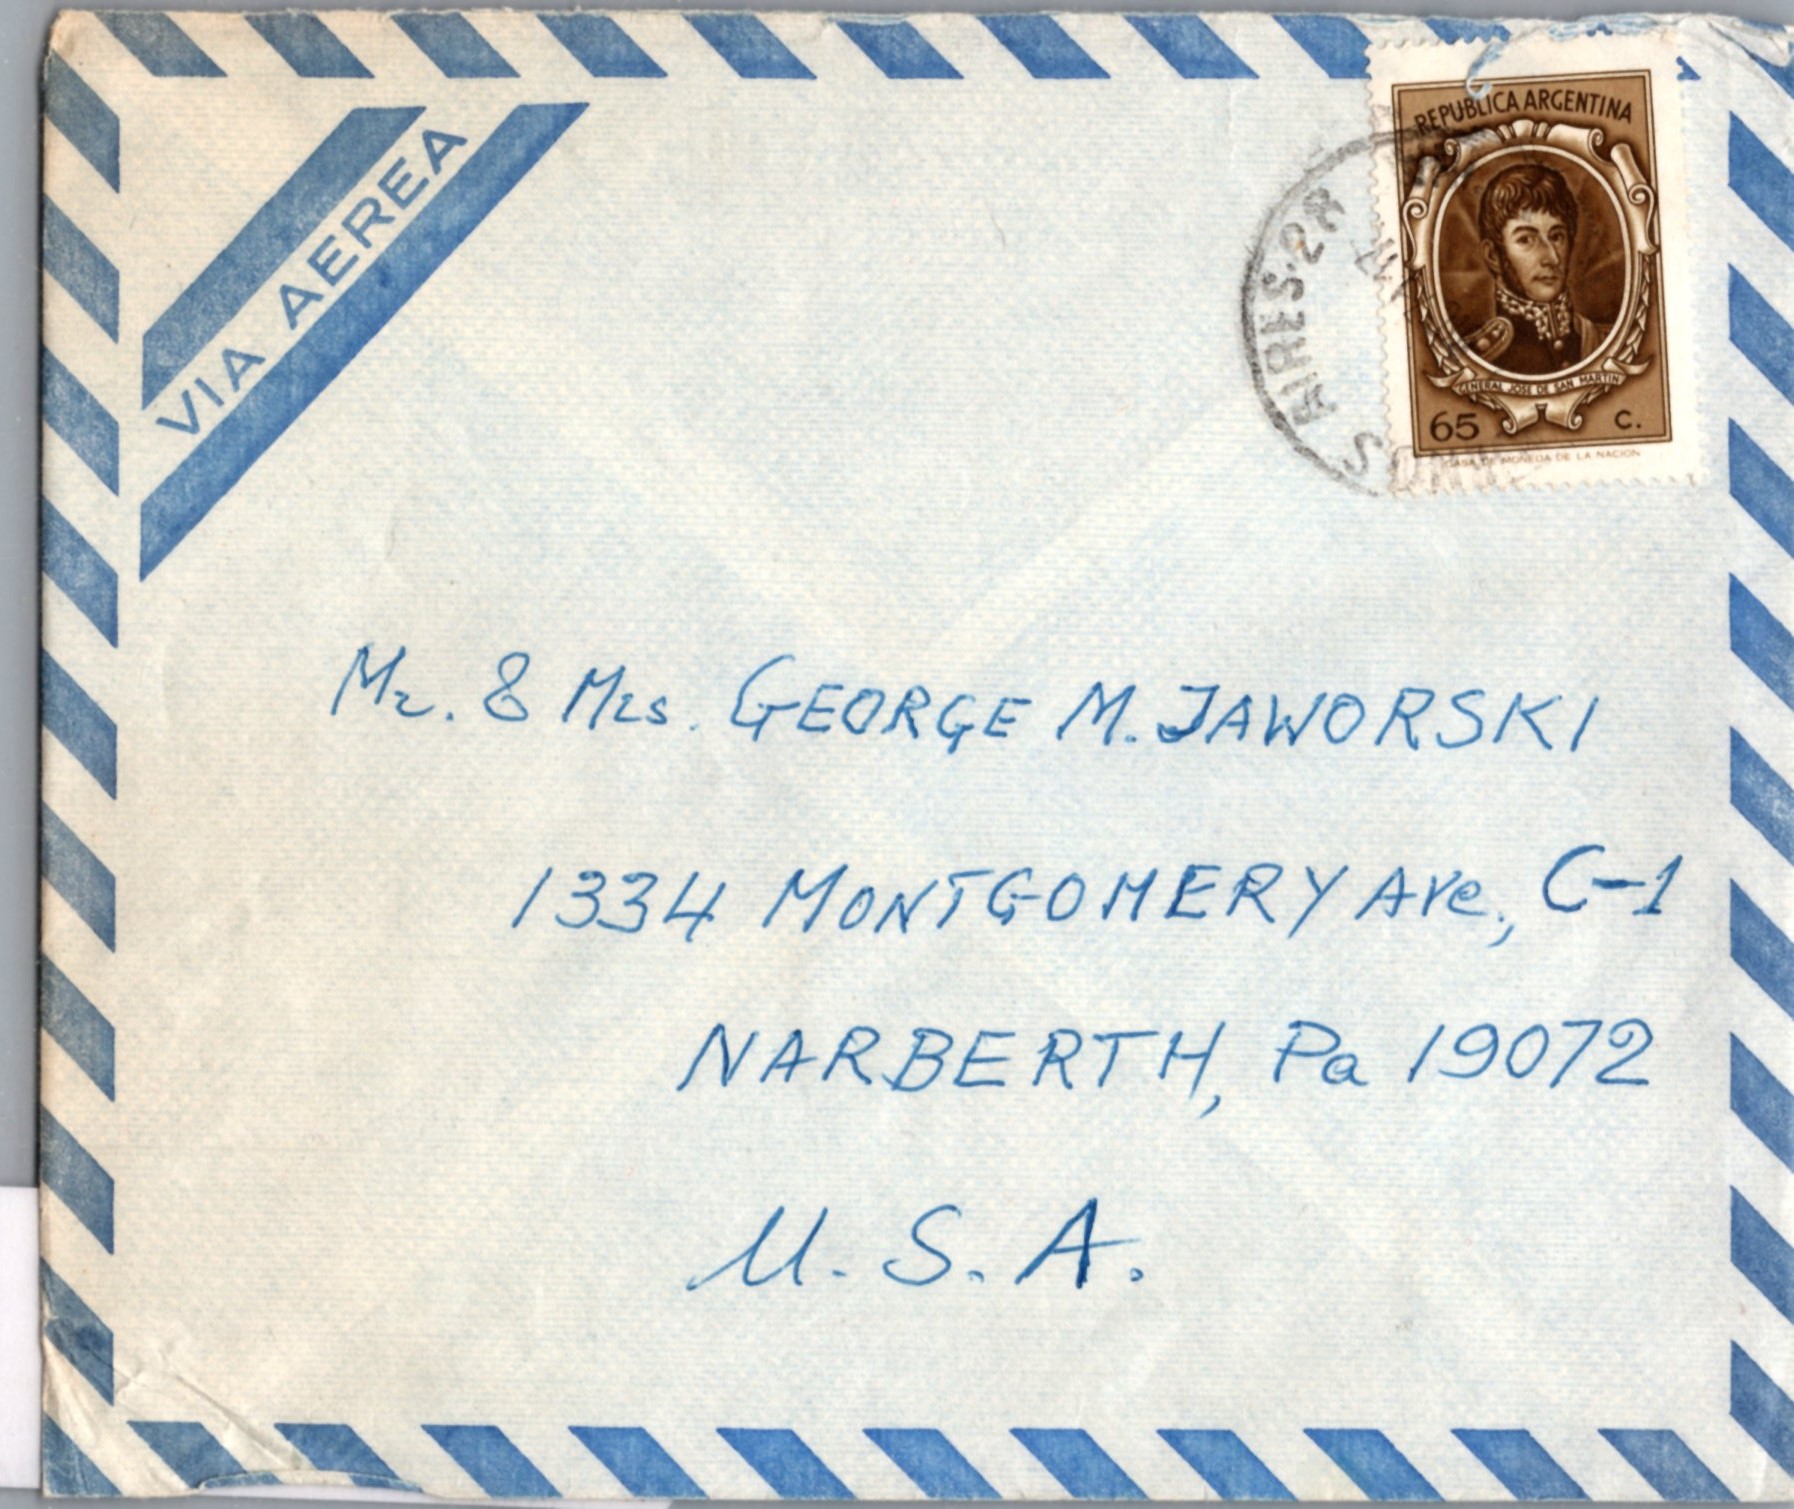 VIA AEREA
REPUBLICA ARGENTINA
GENERAL JOSE DE SAN MARTIN
65 C.
CASA DE MONEDA DE LA NACION
S AIRES·28
Mr. & Mrs. GEORGE M. JAWORSKI
1334 MONTGOMERY Ave., C-1
NARBERTH, Pa 19072
U.S.A.